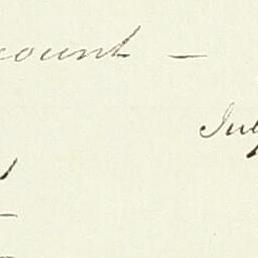 count —
July